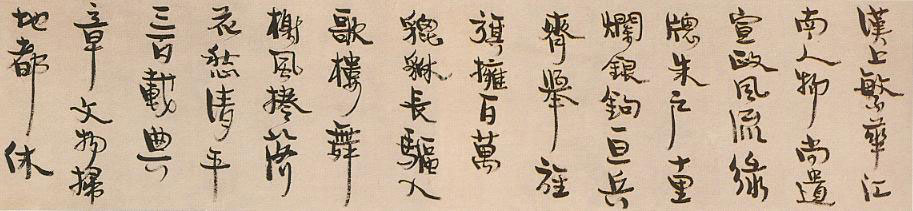 漢上繁華江
南人物尚遺
宣政風流綠
牕朱戶十里
爛銀鉤一旦兵
齊舉旌
旗擁百萬
貔貅長驅入
歌樓舞
榭風捲落
花愁清平
三百載典
章文物掃
地都休